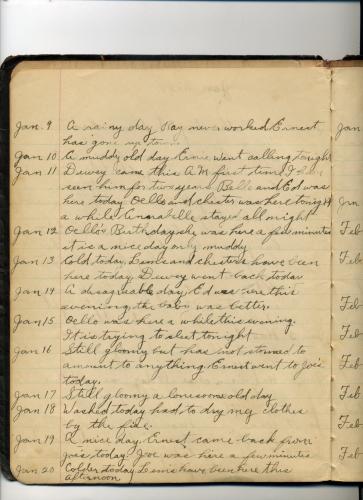 Jan. 9 A rainy day Ray never worked Ernest
has gone up town.
Jan 10 A muddy old day Ernie went calling tonight
Jan 11 Dewey came this A.M. first time I
seen him for two years Belle and Ed was
here today Ocllo and chester was here tonight
a while Annabelle stayed all night
Jan 12 Ocllo's Birthday she was here a few minutes
it is a nice day only muddy
Jan 13 Cold today and chesters have been
here today. Dewey went back today
Jan 14 A disagreable day, Ed was here this
evening, the baby was better.
Jan 15 Ocllo was here a while this evening.
It is trying to sleet tonight
Jan 16 Still gloomy but has not stormed to
amount to anything. Ernest went to Joe's
today.
Jan 17 Still gloomy a lonesome old day
Jan 18 Washed today had to dry my clothes
by the fire.
Jan 19 A nice day. Ernest came back from
Joe's today. Joe was here a few minutes
Jan 20 Colder today have been here this
afternoon
Jan
Jan
Feb
Feb
Feb
Feb
Feb
Feb
Feb
Feb